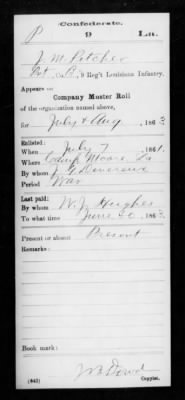 Confederate.
P 9 La.
J. M. Pitcher
Pvt, Co. B, 9 Reg't Louisiana Infantry.
Appears on
Company Muster Roll
of the organization named above,
for July & Aug, 1863
Enlisted:
When July 7, 1861.
Where Camp Moore, La
By whom J. G. Devereux
Period War
Last paid:
By whom W. J. Hughes
To what time June 30, 1863
Present or absent Present
Remarks:
Book mark:
(642) Copyist.